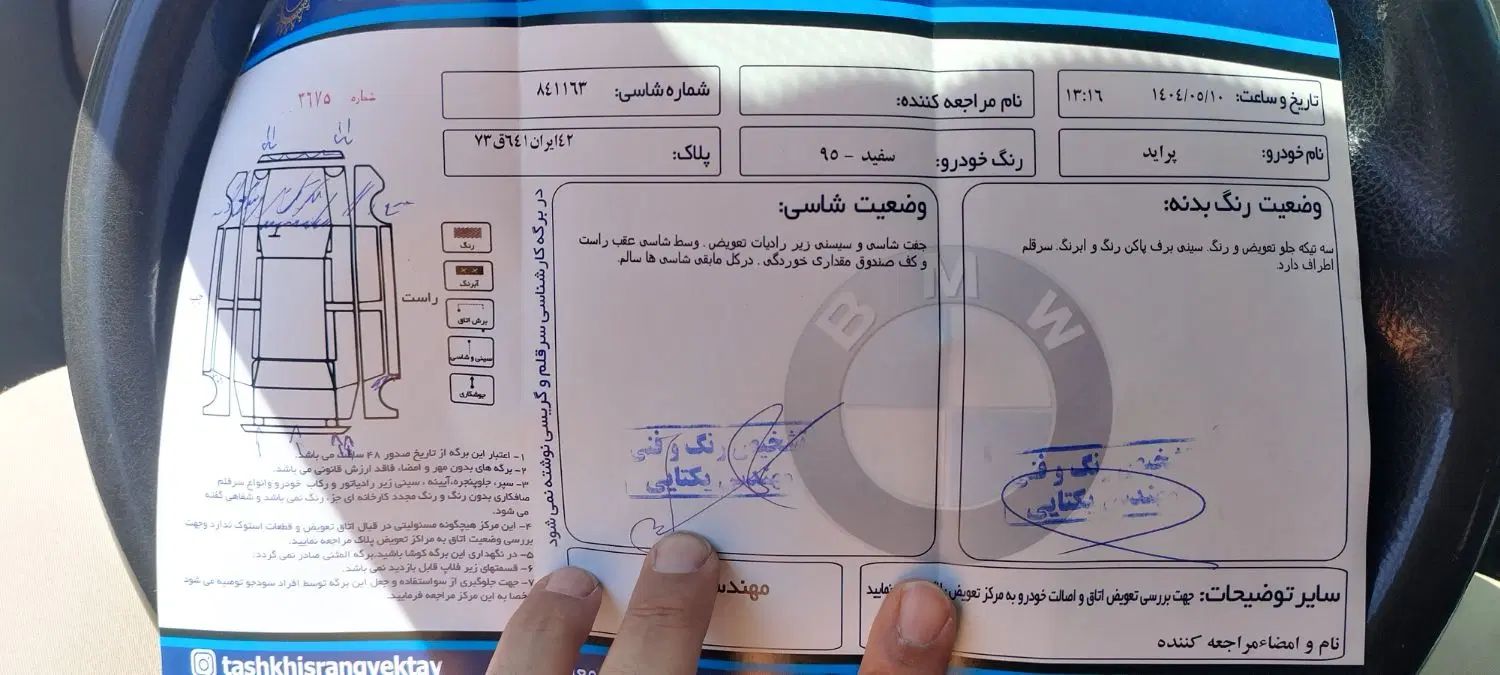 تاریخ و ساعت: ١٤٠٤/٠٥/١٠ ١٣:١٦
نام مراجعه کننده:
شماره شاسی: ٨٤١١٦٣
نام خودرو: پراید
رنگ خودرو: سفید - ٩٥
پلاک: ٤٢ایران٦٤١ق٧٣
وضعیت رنگ بدنه:
سه تیکه جلو تعویض و رنگ. سینی برف پاکن رنگ و ابرنگ. سرقلم
اطراف دارد.
وضعیت شاسی:
جفت شاسی و سیسنی زیر رادیات تعویض. وسط شاسی عقب راست
و کف صندوق مقداری خوردگی. درکل مابقی شاسی ها سالم.
BMW
تشخیص رنگ و فنی
مهندس یکتایی
رنگ و فنی
یکتایی
سایر توضیحات: جهت بررسی تعویض اتاق و اصالت خودرو به مرکز تعویض نمایید
نام و امضاءمراجعه کننده
در برگه کارشناسی سرقلم و گریسی نوشته نمی شود
شماره ٣٦٧٥
رنگ
آبرنگ
برش اتاق
سینی و شاسی
جوشکاری
راست
چپ
١- اعتبار این برگه از تاریخ صدور ٤٨ ساعت می باشد.
٢- برگه های بدون مهر و امضاء فاقد ارزش قانونی می باشد.
٣- سپر، جلوپنجره، آیینه، سینی زیر رادیاتور و رکاب خودرو وانواع سرقلم
صافکاری بدون رنگ و رنگ مجدد کارخانه ای جزء رنگ نمی باشد و شفاهی گفته
می شود.
٤- این مرکز هیچگونه مسئولیتی در قبال اتاق تعویض و قطعات استوک ندارد وجهت
بررسی وضعیت اتاق به مراکز تعویض پلاک مراجعه نمایید.
٥- در نگهداری این برگه کوشا باشید.برگه المثنی صادر نمی گردد.
٦- قسمتهای زیر فلاپ قابل بازدید نمی باشد.
٧- جهت جلوگیری از سواستفاده و جعل این برگه توسط افراد سودجو توصیه می شود
شخصا به این مرکز مراجعه فرمایید.
tashkhisrangyektay